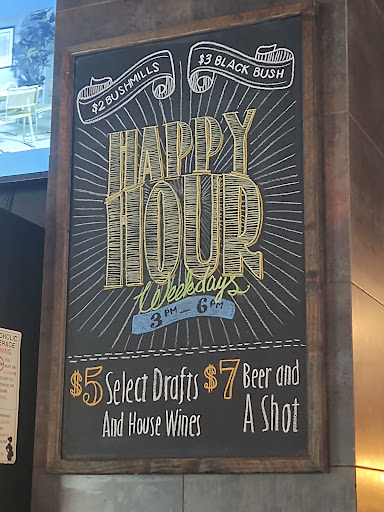 $2 BUSHMILLS
$3 BLACK BUSH
HAPPY
HOUR
Weekdays
3 PM - 6 PM
$5 Select Drafts
And House Wines
$7 Beer and
A Shot